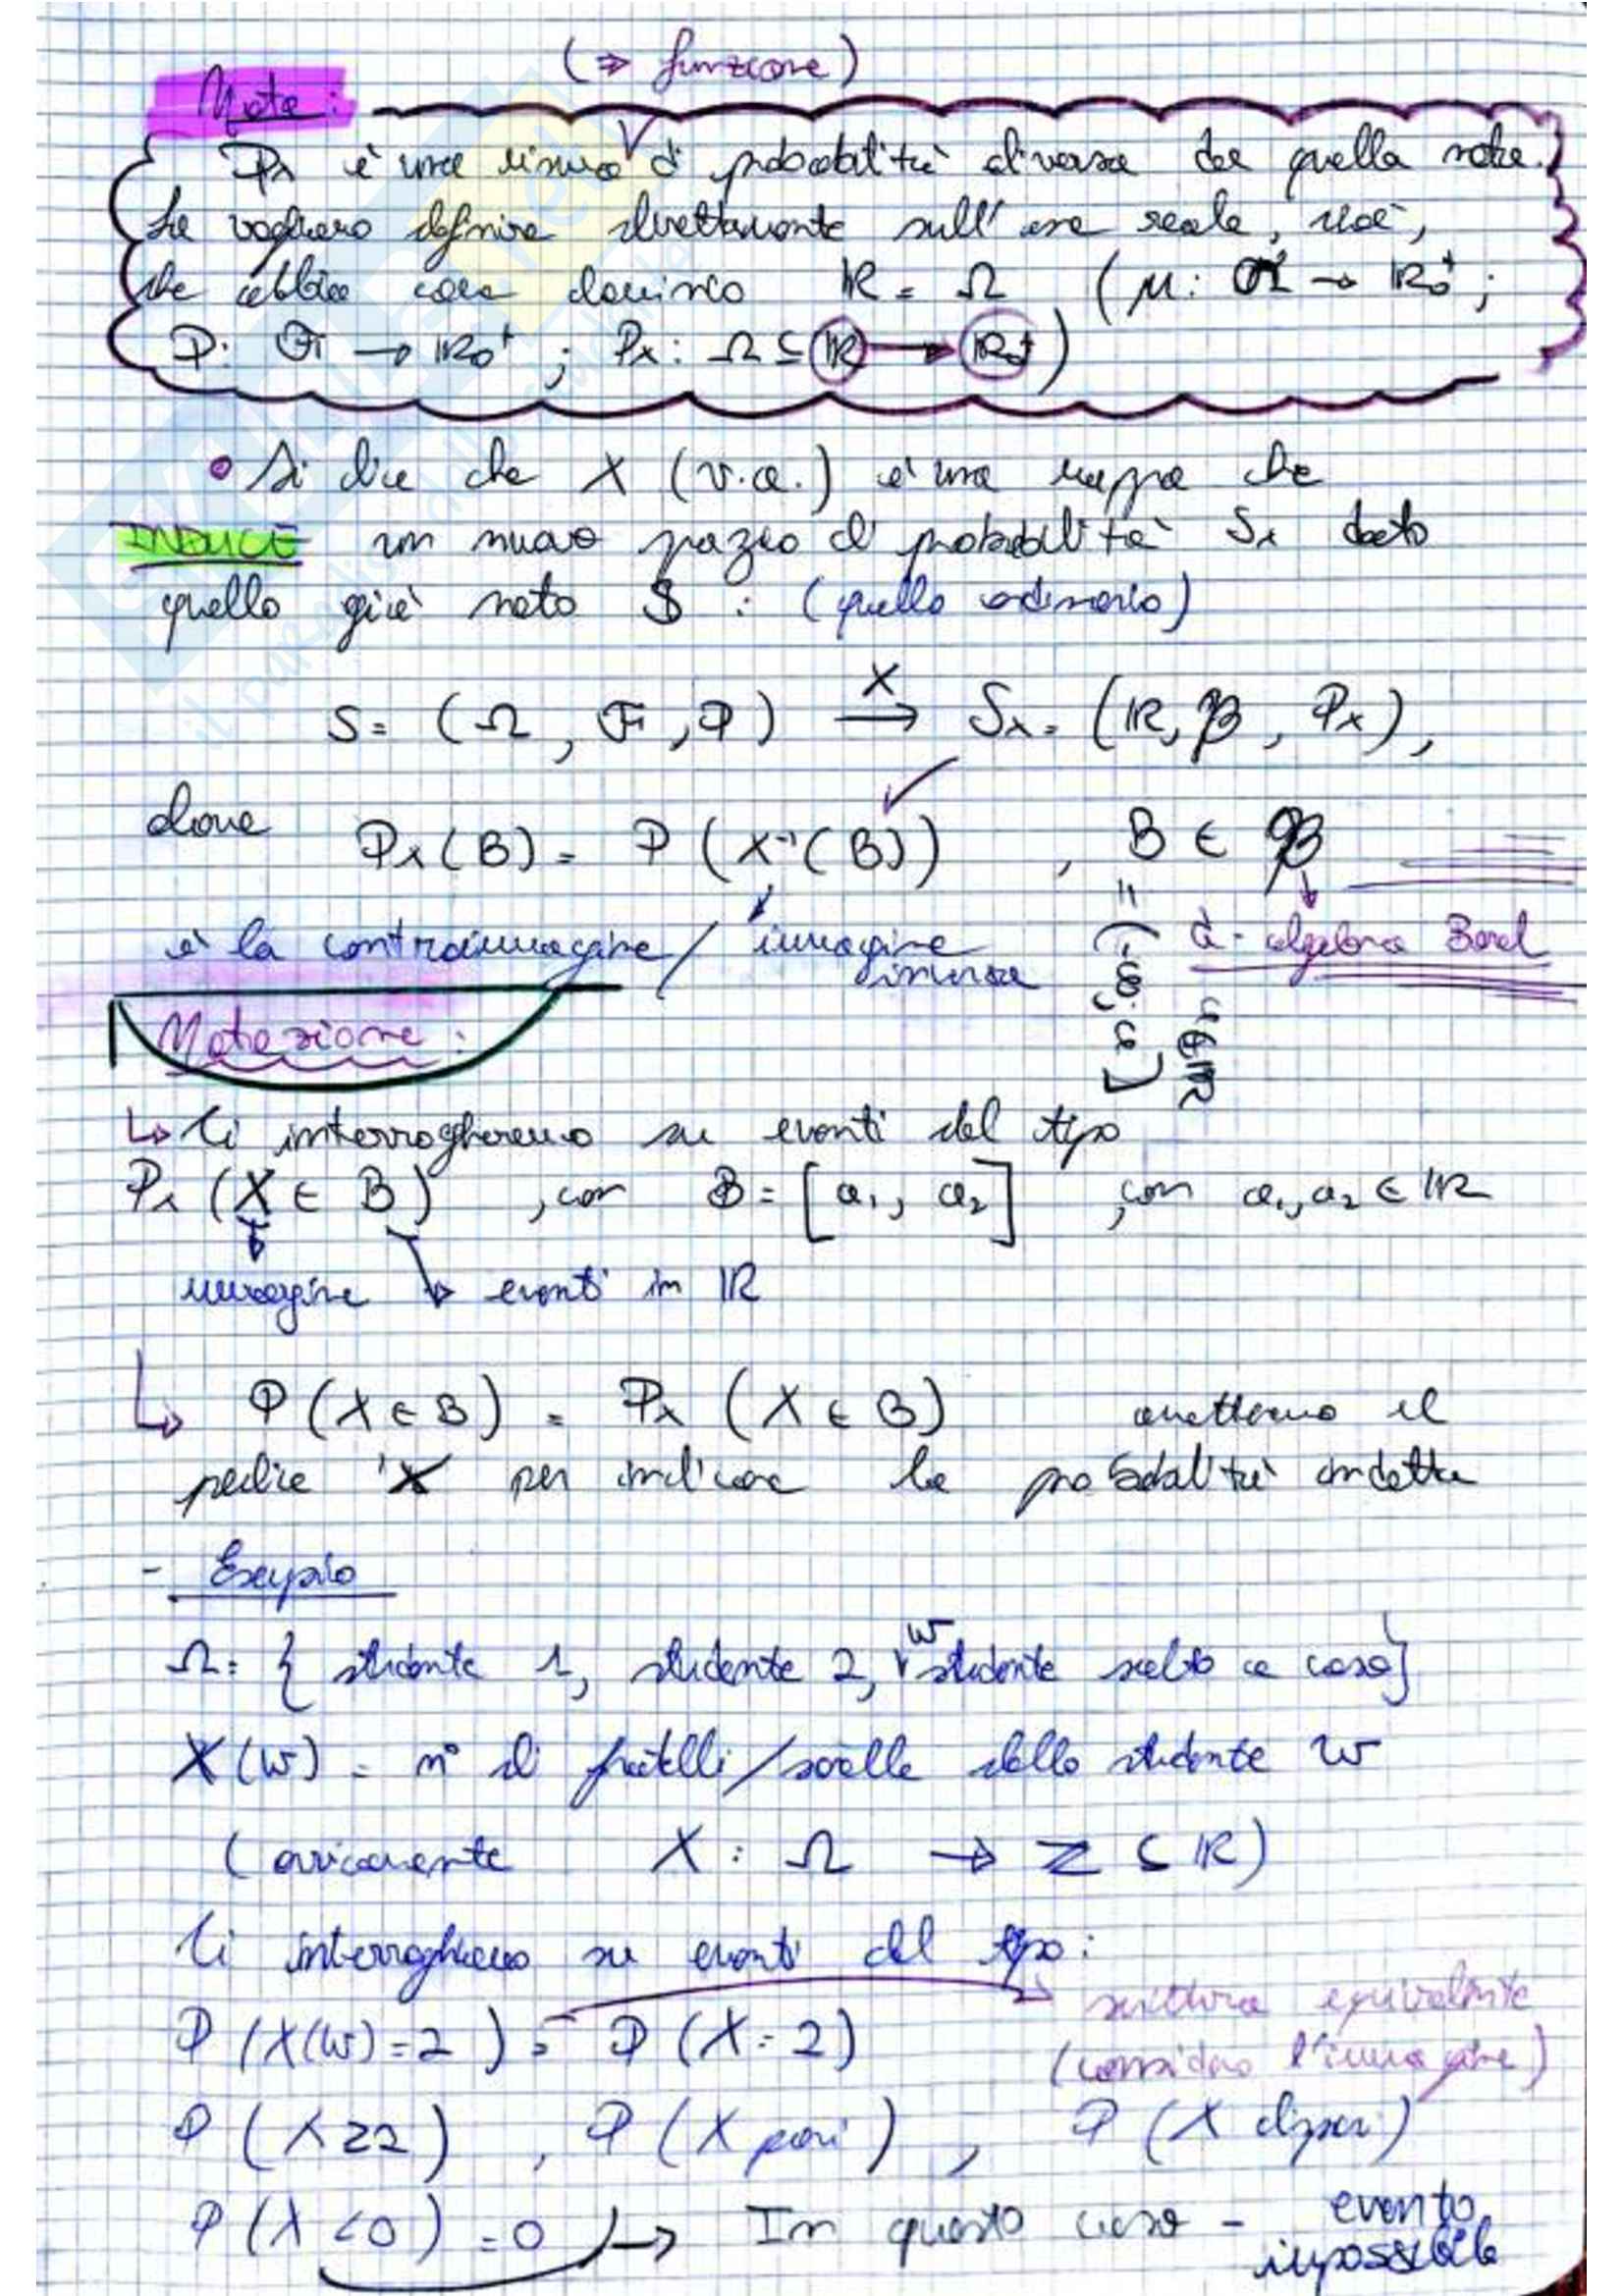 (⇒ funzione)
Nota:
Px è una misura di probabilità diversa da quella nota.
La vogliamo definire direttamente sull'asse reale, cioè,
che abbia come dominio ℝ = Ω (μ: 𝒜 → ℝ₀⁺ ;
P: ℱ → ℝ₀⁺ ; Px: Ω ⊆ ℝ → ℝ₀⁺)
• Si dice che X (v.a.) è una mappa che
INDUCE un nuovo spazio di probabilità Sx dato
quello già noto S : (quello ordinario)
S = (Ω, ℱ, P) →X Sx = (ℝ, ℬ, Px),
dove Px(B) = P(X⁻¹(B)) , B ∈ ℬ
è la controimmagine / immagine inversa
= (-∞; c] c∈ℝ
σ-algebra Borel
Notazione:
↳ Ci interrogheremo su eventi del tipo
Px (X ∈ B) , con B = [a₁, a₂] , con a₁, a₂ ∈ ℝ
immagine eventi in ℝ
↳ P(X ∈ B) = Px (X ∈ B) omettiamo il
pedice 'X per indicare la probabilità indotta
- Esempio
Ω = { studente 1, studente 2, w studente scelto a caso}
X(w) = n° di fratelli/sorelle dello studente w
(ovviamente X: Ω → ℤ ⊆ ℝ)
Ci interroghiamo su eventi del tipo:
P(X(w)=2) = P(X=2)
scrittura equivalente
(considero l'immagine)
P(X≥2) , P(X pari) , P(X dispari)
P(X<0) = 0 → In questo caso - evento
impossibile